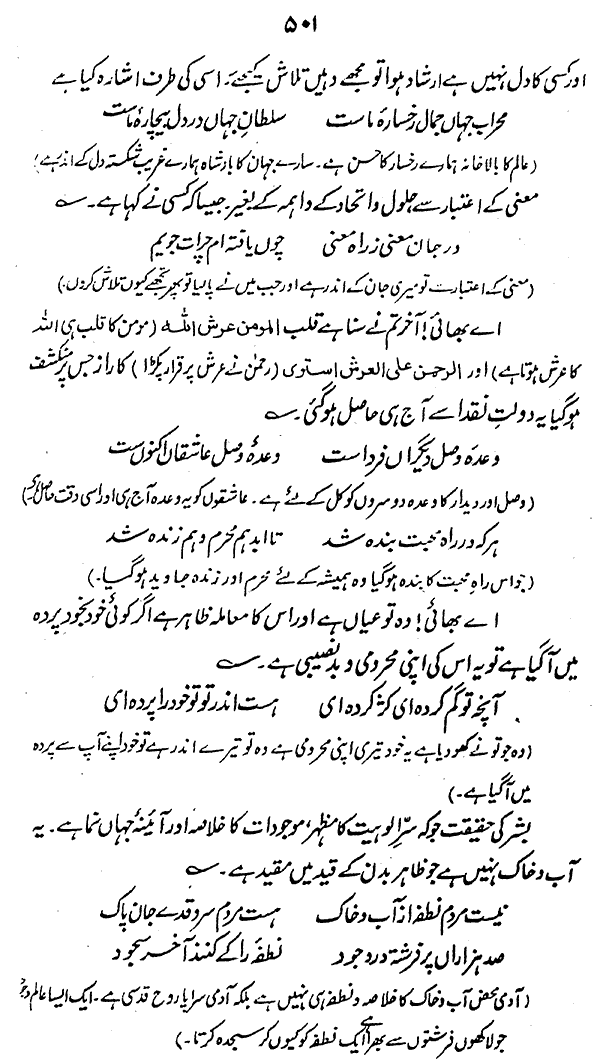 ۵۰۱
اور کسی کا دل نہیں ہے ارشاد ہوا تو مجھے وہیں تلاش کیجئے۔ اسی کی طرف اشارہ کیا ہے
محراب جہاں جمال رخسارۂ ماست سلطان جہاں در دل بیچارۂ ماست
(عالم کا بالا خانہ ہمارے رخسار کا حسن ہے۔ سارے جہان کا بادشاہ ہمارے غریب شکستہ دل کے اندر ہے)
معنی کے اعتبار سے حلول و اتحاد کے واہمہ کے بغیر۔ جیسا کہ کسی نے کہا ہے۔
در جان معنی ز راہ معنی چوں یافتہ ام چرات جویم
(معنی کے اعتبار سے تو میری جان کے اندر ہے اور جب میں نے پا لیا تو پھر تجھے کیوں تلاش کروں۔)
اے بھائی! آخر تم نے سنا ہے قلب المومن عرش اللہ (مومن کا قلب ہی اللہ
کا عرش ہوتا ہے) اور الرحمن علی العرش استوی (رحمٰن نے عرش پر قرار پکڑا) کا راز جس پر منکشف
ہوگیا یہ دولتِ نقد اسے آج ہی حاصل ہوگئی۔
وعدہ وصل دیگراں فردا است وعدۂ وصل عاشقاں اکنوں ست
(وصل اور دیدار کا وعدہ دوسروں کو کل کے لئے ہے۔ عاشقوں کو یہ وعدہ آج ہی اور اسی وقت حاصل ہے)
ہر کہ در راہ محبت بندہ شد تا ابد ہم محرم و ہم زندہ شد
(جو اس راہِ محبت کا بندہ ہوگیا وہ ہمیشہ کے لئے محرم اور زندہ جاوید ہوگیا۔)
اے بھائی! وہ تو عیاں ہے اور اس کا معاملہ ظاہر ہے اگر کوئی خود بخود پردہ
میں آگیا ہے تو یہ اس کی اپنی محرومی و بدنصیبی ہے۔
آنچہ تو گم کردہ ای کژ کردہ ای ہست اندر تو تو خود را پردہ ای
(وہ جو تو نے کھو دیا ہے یہ خود تیری اپنی محرومی ہے وہ تو تیرے اندر ہے تو خود اپنے آپ سے پردہ
میں آگیا ہے۔)
بشر کی حقیقت جو کہ سرِّ الوہیت کا مظہر، موجودات کا خلاصہ اور آئینۂ جہاں نما ہے۔ یہ
آب و خاک نہیں ہے جو ظاہر بدن کے قید میں مقید ہے۔
نیست مردم نطفہ از آب و خاک ہست مردم سر و قدے جان پاک
صد ہزاراں پر فرشتہ در وجود نطفہ را کے کنند آخر سجود
(آدمی محض آب و خاک کا خلاصہ و نطفہ ہی نہیں ہے بلکہ آدمی سراپا روح قدسی ہے۔ ایک ایسا عالم وجود
جو لاکھوں فرشتوں سے بھرا ہے ایک نطفہ کو کیوں کر سجدہ کرتا۔)